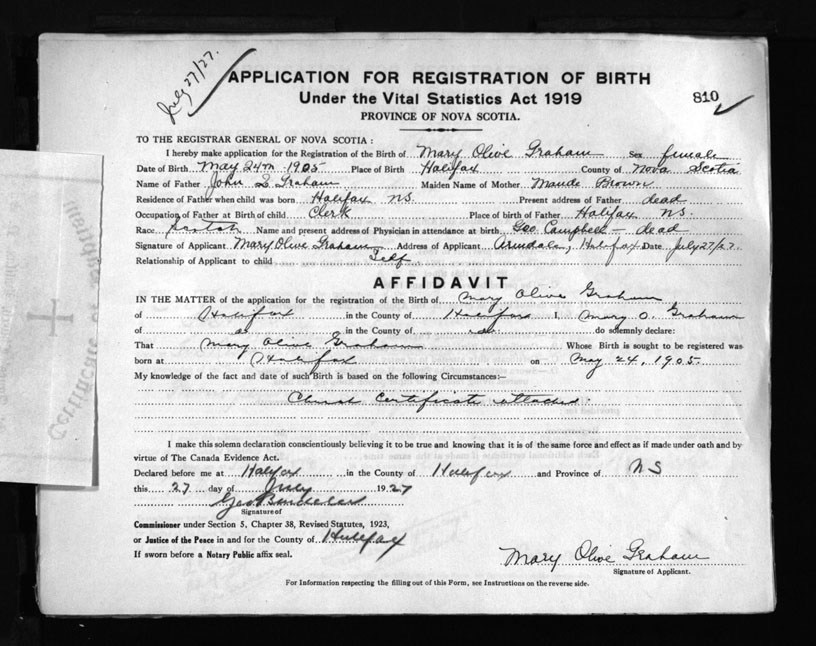 July 27/27.
APPLICATION FOR REGISTRATION OF BIRTH
Under the Vital Statistics Act 1919
810
PROVINCE OF NOVA SCOTIA.
TO THE REGISTRAR GENERAL OF NOVA SCOTIA :
I hereby make application for the Registration of the Birth of Mary Olive Graham Sex female
Date of Birth May 24th 1905 Place of Birth Halifax County of Nova Scotia
Name of Father John Graham Maiden Name of Mother Maude Brown
Residence of Father when child was born Halifax NS. Present address of Father dead
Occupation of Father at Birth of child Clerk Place of birth of Father Halifax NS.
Race Name and present address of Physician in attendance at birth Geo. Campbell - dead
Signature of Applicant Mary Olive Graham Address of Applicant Armdale, Halifax Date July 27/27.
Relationship of Applicant to child Self
AFFIDAVIT
IN THE MATTER of the application for the registration of the Birth of Mary Olive Graham
of Halifax in the County of Halifax I, Mary O. Graham
of do in the County of do do solemnly declare:
That Mary Olive Graham Whose Birth is sought to be registered was
born at Halifax on May 24, 1905.
My knowledge of the fact and date of such Birth is based on the following Circumstances:—
Church Certificate attached.
I make this solemn declaration conscientiously believing it to be true and knowing that it is of the same force and effect as if made under oath and by
virtue of The Canada Evidence Act.
Declared before me at Halifax in the County of Halifax and Province of NS
this 27 day of July 1927
Geo
Signature of
Commissioner under Section 5, Chapter 38, Revised Statutes, 1923,
or Justice of the Peace in and for the County of Halifax
If sworn before a Notary Public affix seal.
Mary Olive Graham
Signature of Applicant.
For Information respecting the filling out of this Form, see Instructions on the reverse side.